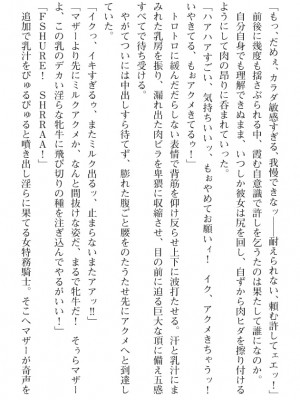 「もっ、だめぇ、カラダ敏感すぎる、我慢できなッ――耐えられない、頼む許してェエッ！」
前後に幾度も揺さぶられる中、霞む自意識で許しを乞うたのは果たして誰になのか。
自分自身でも理解できぬまま、いつしか彼女は尻を回し、自ずから肉ヒダを擦り付ける
ようにして肉の昂りに呑まれていった。
「ハアハアすごい、気持ちいいッ、もぉやめてお願いィ！　イク　アクメきちゃうッ！
やめてくる、もぉアクメきてるぅッ！」
トロトロに緩んだだらしない表情で背筋を仰け反らせ上下に波打たせる。汗と乳汁にま
みれた乳房を振り、漏れ出た肉ビラを卑猥に収縮させ、目の前に迫る巨大な頂に備え五感
すべてで待ち受ける。
やがてついには中出しすら待てず、膨れた腹ごと腰をのたうたせ先にアクメへと到達し
ていた。
「イクっ、イキすぎるぅ、またミルク出るッ、止まらないまたアッ‼」
「マザーより先にミルクアクメか、なんと間抜けな姿だ、まるで牝牛だ！　そぅらマザー
よ、この乳のデカい淫らな牝牛に飛び切りの種を注ぎ込んでやるがいい！」
「FSHURE！　SHRRAA！」
追加で乳汁をぴゅるぴゅると噴き出し淫らに果てる女特務騎士。そこへマザーが奇声を